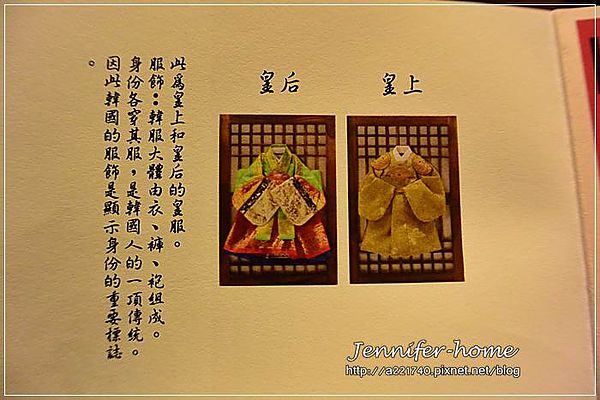 皇后
皇上
此為皇上和皇后的皇服。
服飾：韓服大體由衣、褲、袍組成。
身份各穿其服，是韓國人的一項傳統。
因此韓國的服飾是顯示身份的重要標誌
。
Jennifer-home
http://a221740.pixnet.net/blog